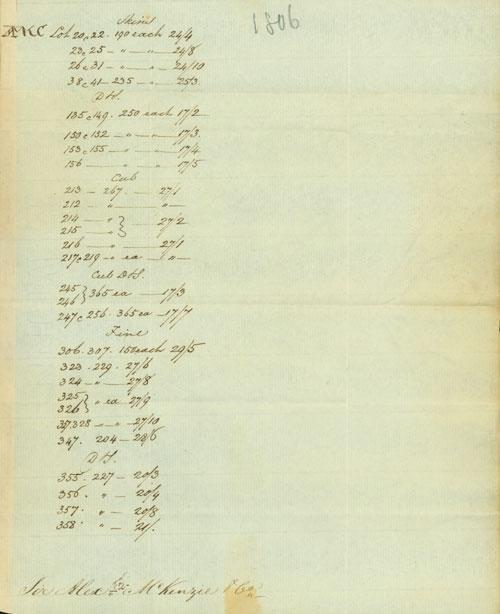 1806
Skins
AKC Lot 20 c 22. 190 each 24/4
23 c 25 - " - " - 24/8
26 c 31 - " - " - 24/10
38 c 41 - 235 - " - 25/3
DH.
135 c 149. 250 each 17/2
150 c 152 - " - " - 17/3
153 c 155 - " - " - 17/4
156 - " - " - 17/5
Cub
213 - 267. - 27/1
212 - " - " -
214 - " } 27/2
215 - "
216 - " - 27/1
217 c 219 - " ea - " -
Cub DH.
245 } 365 ea - 17/3
246
247 c 256. 365 ea - 17/7
Fine
306. 307. 158 each 29/5
323. 229. 27/6
324 - " - 27/8
325 } " ea 27/9
326
327.328 - " - 27/10
347. 204 - 28/6
DH.
355. 227 - 20/3
356. " - 20/4
357. " - 20/8
358. " - 21/.
Sir Alexr McKenzie & Co.